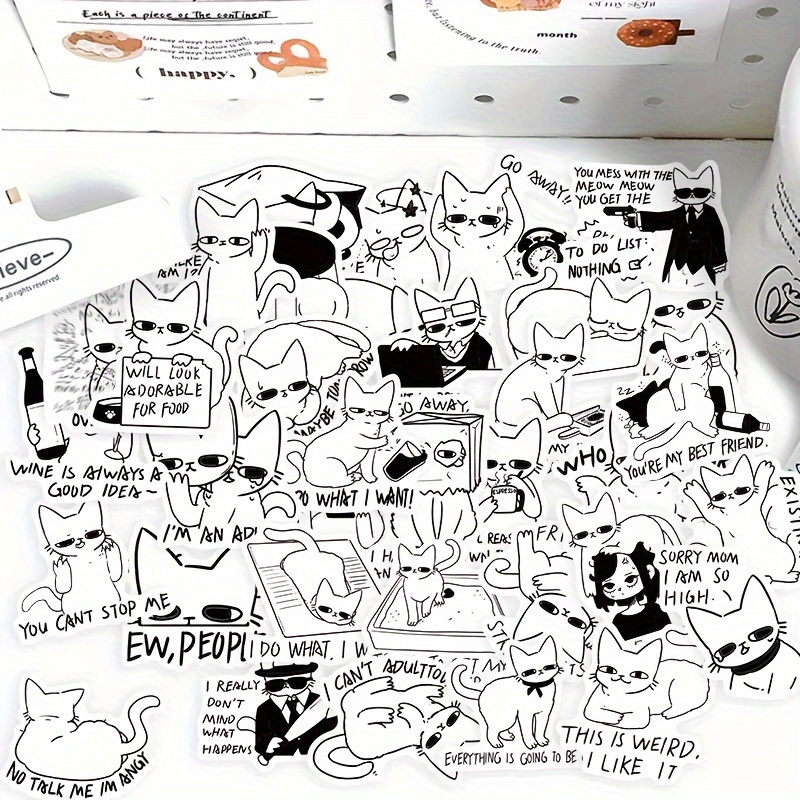 Each is a piece of the continent
Life may always have regret,
but the future is still good,
Life may always have regret,
but the future is still good,
( happy, )
of my sight
but listening to the truth.
month
ieve-
all rights reserved.
GO AWAY!!
YOU MESS WITH THE
MEOW MEOW
YOU GET THE
TO DO LIST:
NOTHING
AM I?
WILL LOOK
ADORABLE
FOR FOOD
MAYBE TOMORROW
GO AWAY.
ZZ
WINE IS ALWAYS A
GOOD IDEA~
DO WHAT I WANT!
ESPRESSO
MY
WHO
YOU'RE MY BEST FRIEND.
I'M AN AD
EXISTIN
I H
FRI
YOU CANT STOP ME
EW, PEOPL
I DO WHAT I W
SORRY MOM
I AM SO
HIGH.
I REALLY
DON'T
MIND
WHAT
HAPPENS
I CAN'T ADULTTO
NO TALK ME IM ANGY
EVERYTHING IS GOING TO BE
THIS IS WEIRD.
I LIKE IT